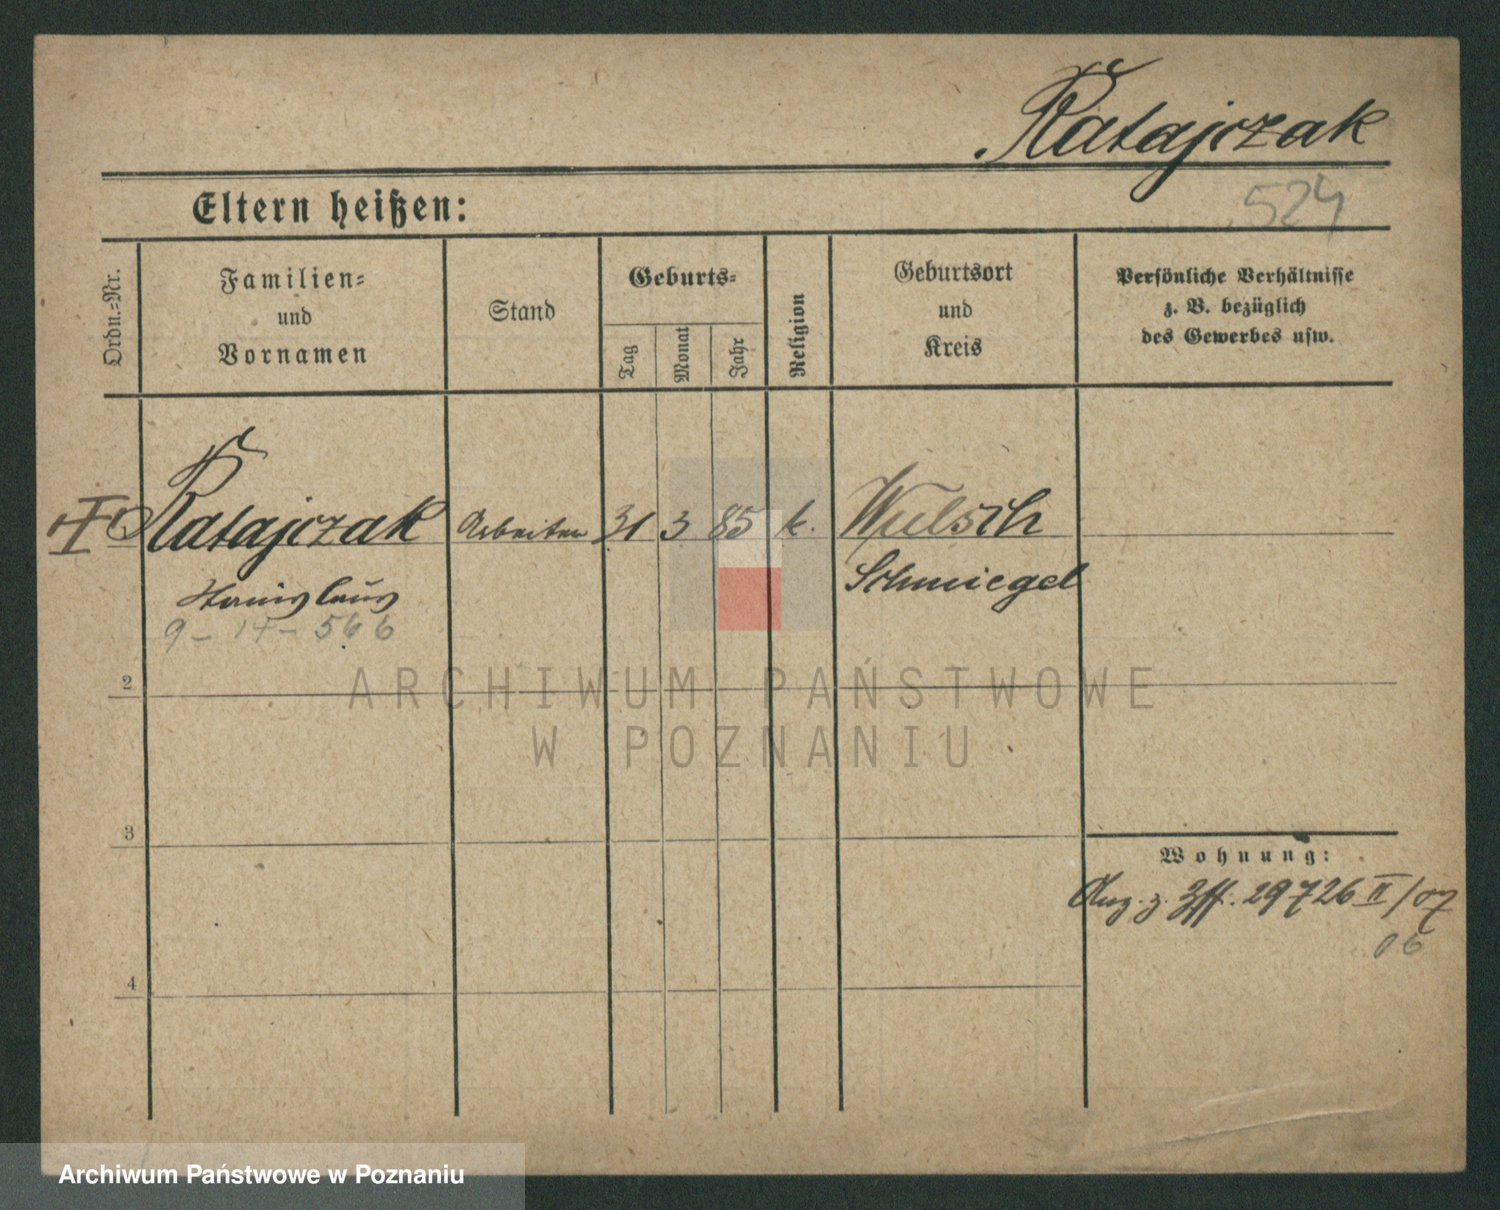 Ratajczak
524
Eltern heißen:
Ordn.-Nr.
Familien-
und
Vornamen
Stand
Geburts-
Tag
Monat
Jahr
Religion
Geburtsort
und
Kreis
Persönliche Verhältnisse
z. B. bezüglich
des Gewerbes usw.
Ratajczak Arbeiter 31 3 85 k. Wulsch
Stanislaus Schmiegel
9-14-566
2
3
4
Wohnung:
Ang. z. Zff. 29726 II/07
06
ARCHIWUM PAŃSTWOWE
W POZNANIU
Archiwum Państwowe w Poznaniu